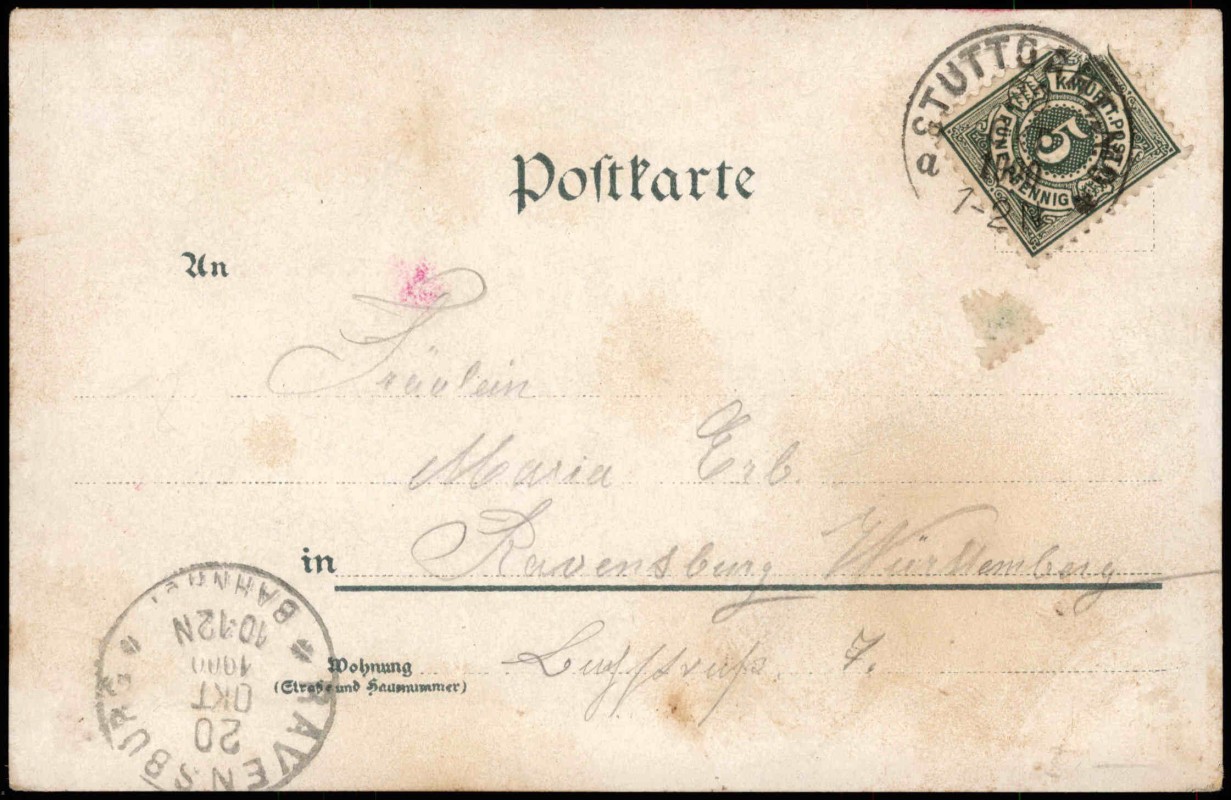 Postkarte
STUTTG
a
1-2 N
K.WÜRTT.POST
FÜNF PFENNIG
5
An
Fräulein
Maria Erb.
in Ravensburg Württemberg
Wohnung
(Straße und Hausnummer)
7.
RAVENSBURG
BAHNH
20
OKT
10-12N